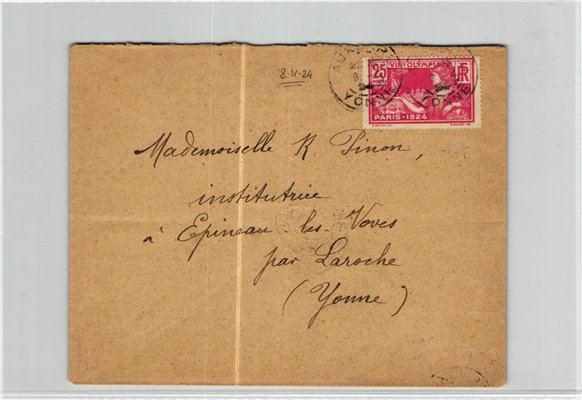 8-IV-24
YONNE
25 VIIIe OLYMPIADE RF
YONNE
PARIS-1924
Mademoiselle R. Pinon,
institutrice
à Epineau les Voves
par Laroche
(Yonne)